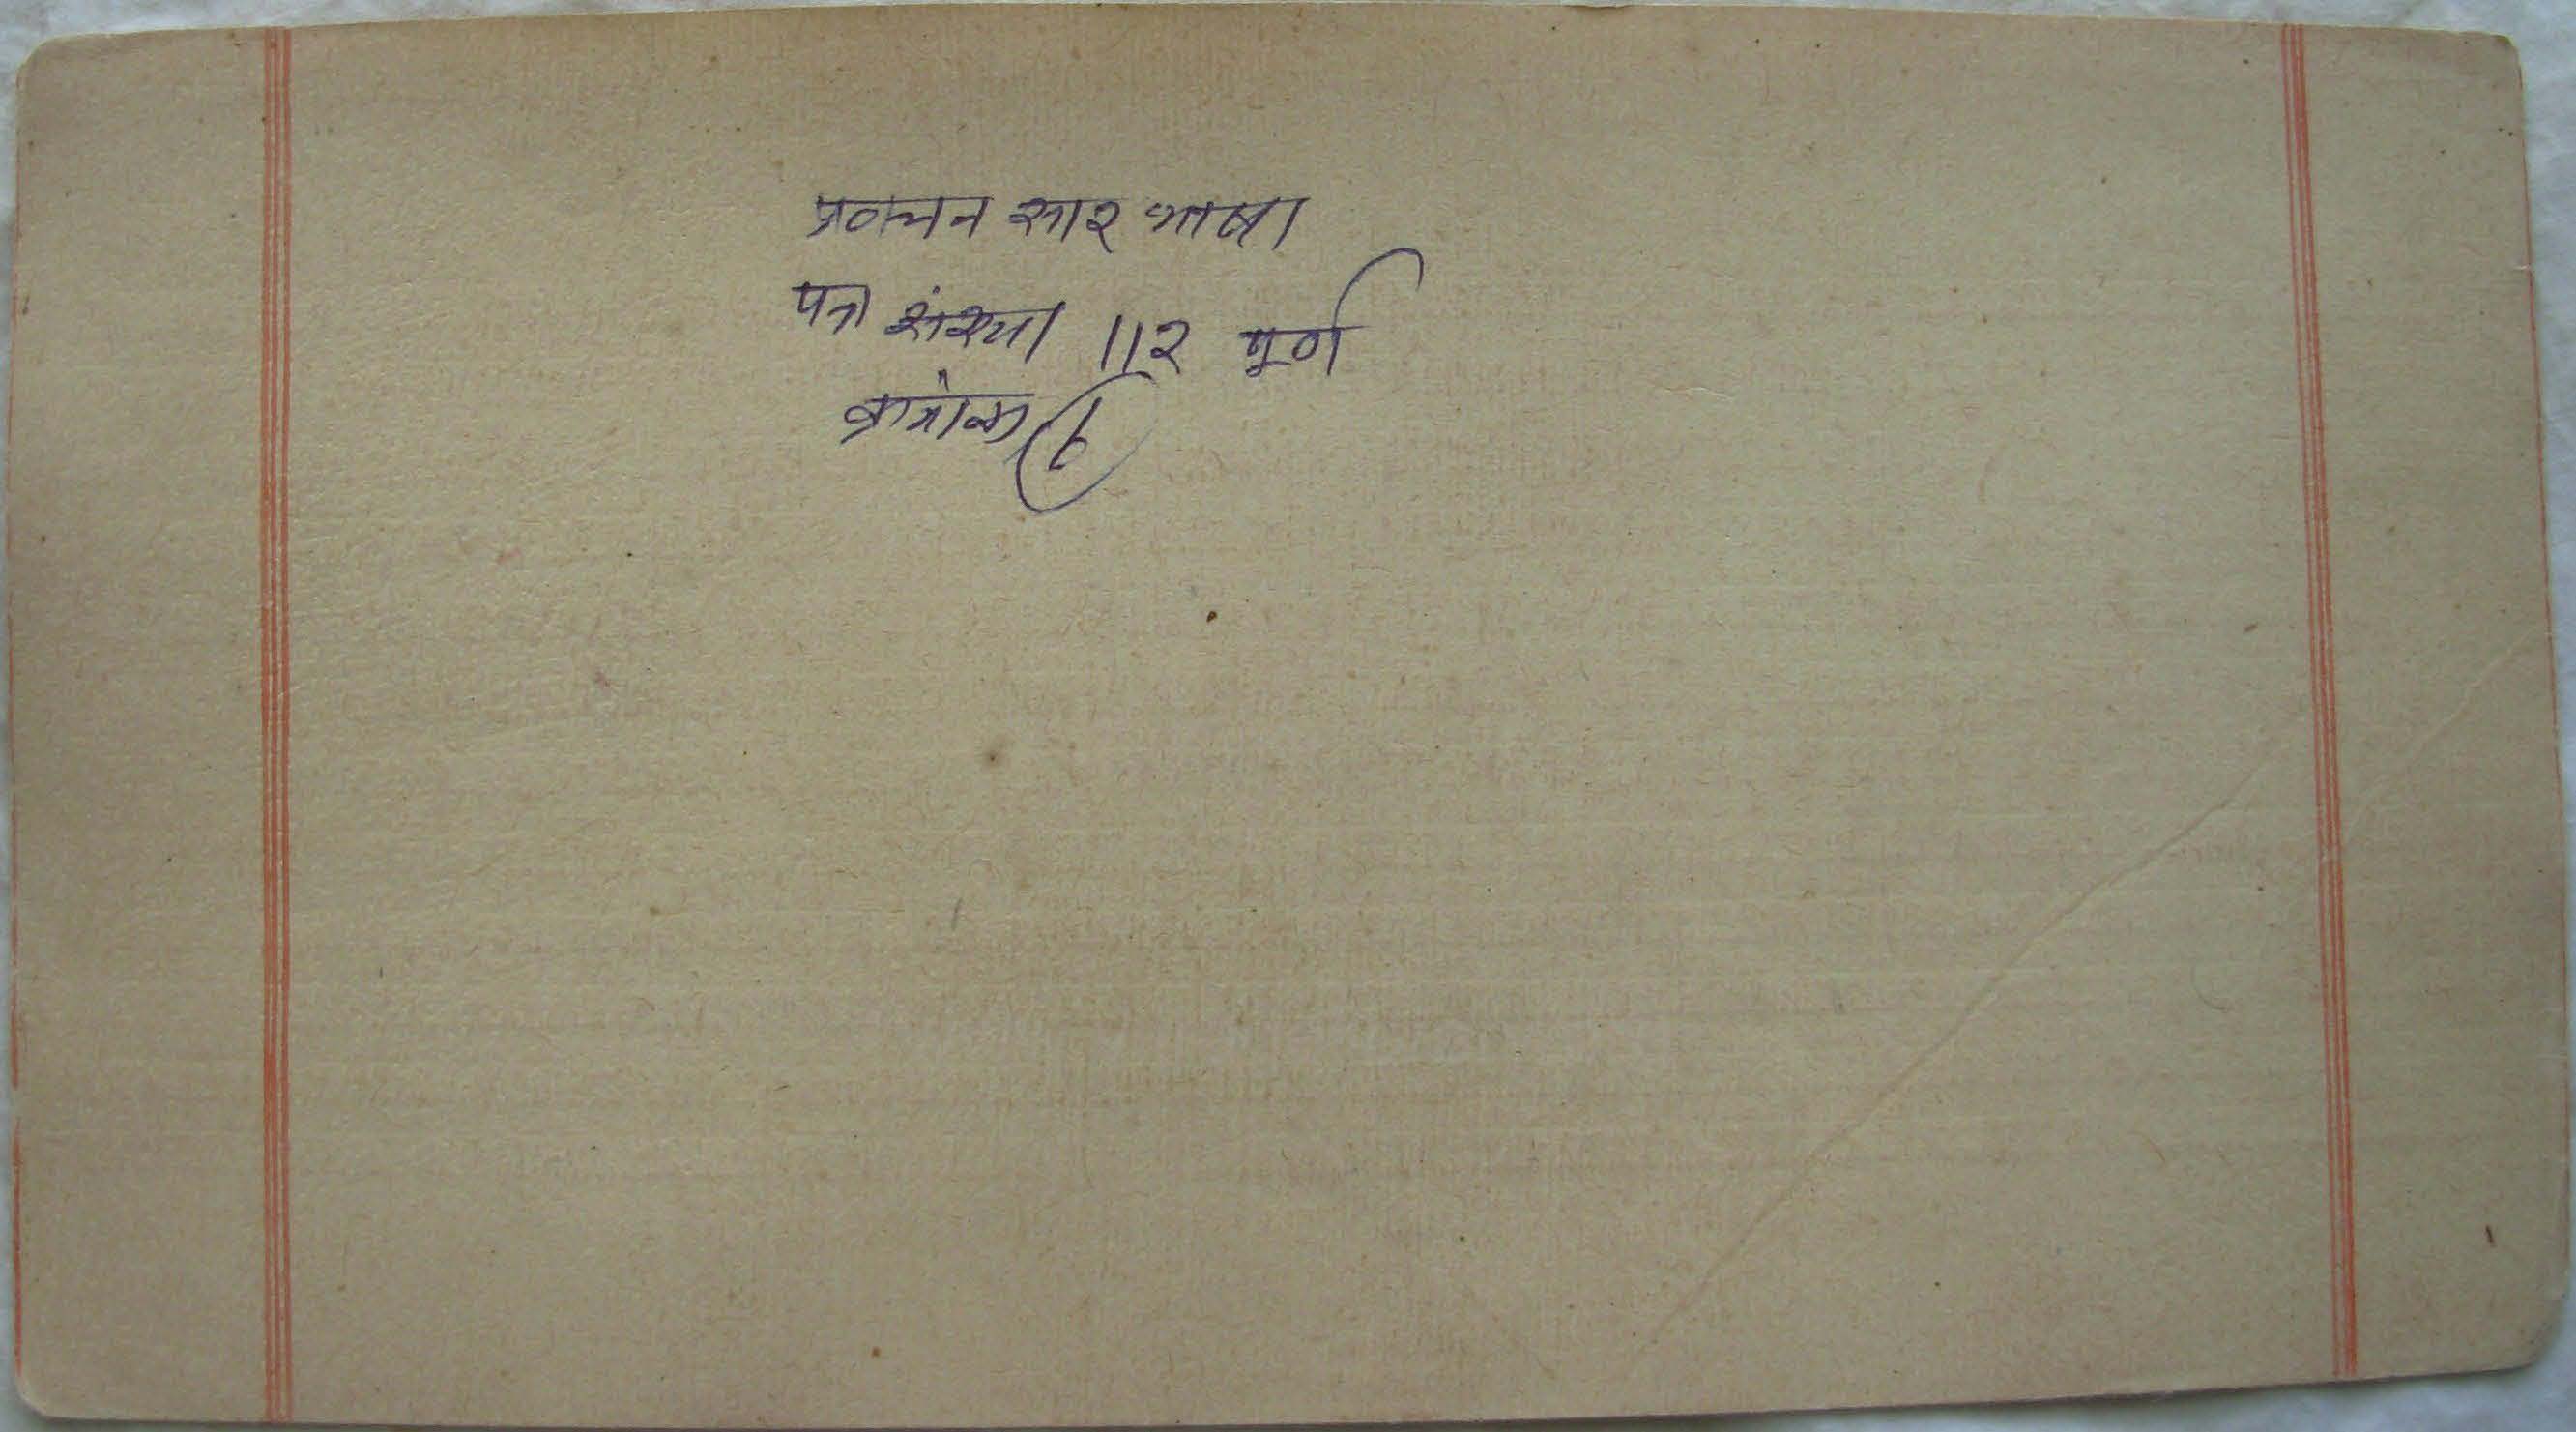 प्रवचन सार भाषा
पत्र संख्या 112 पूर्ण
क्रमांक 6